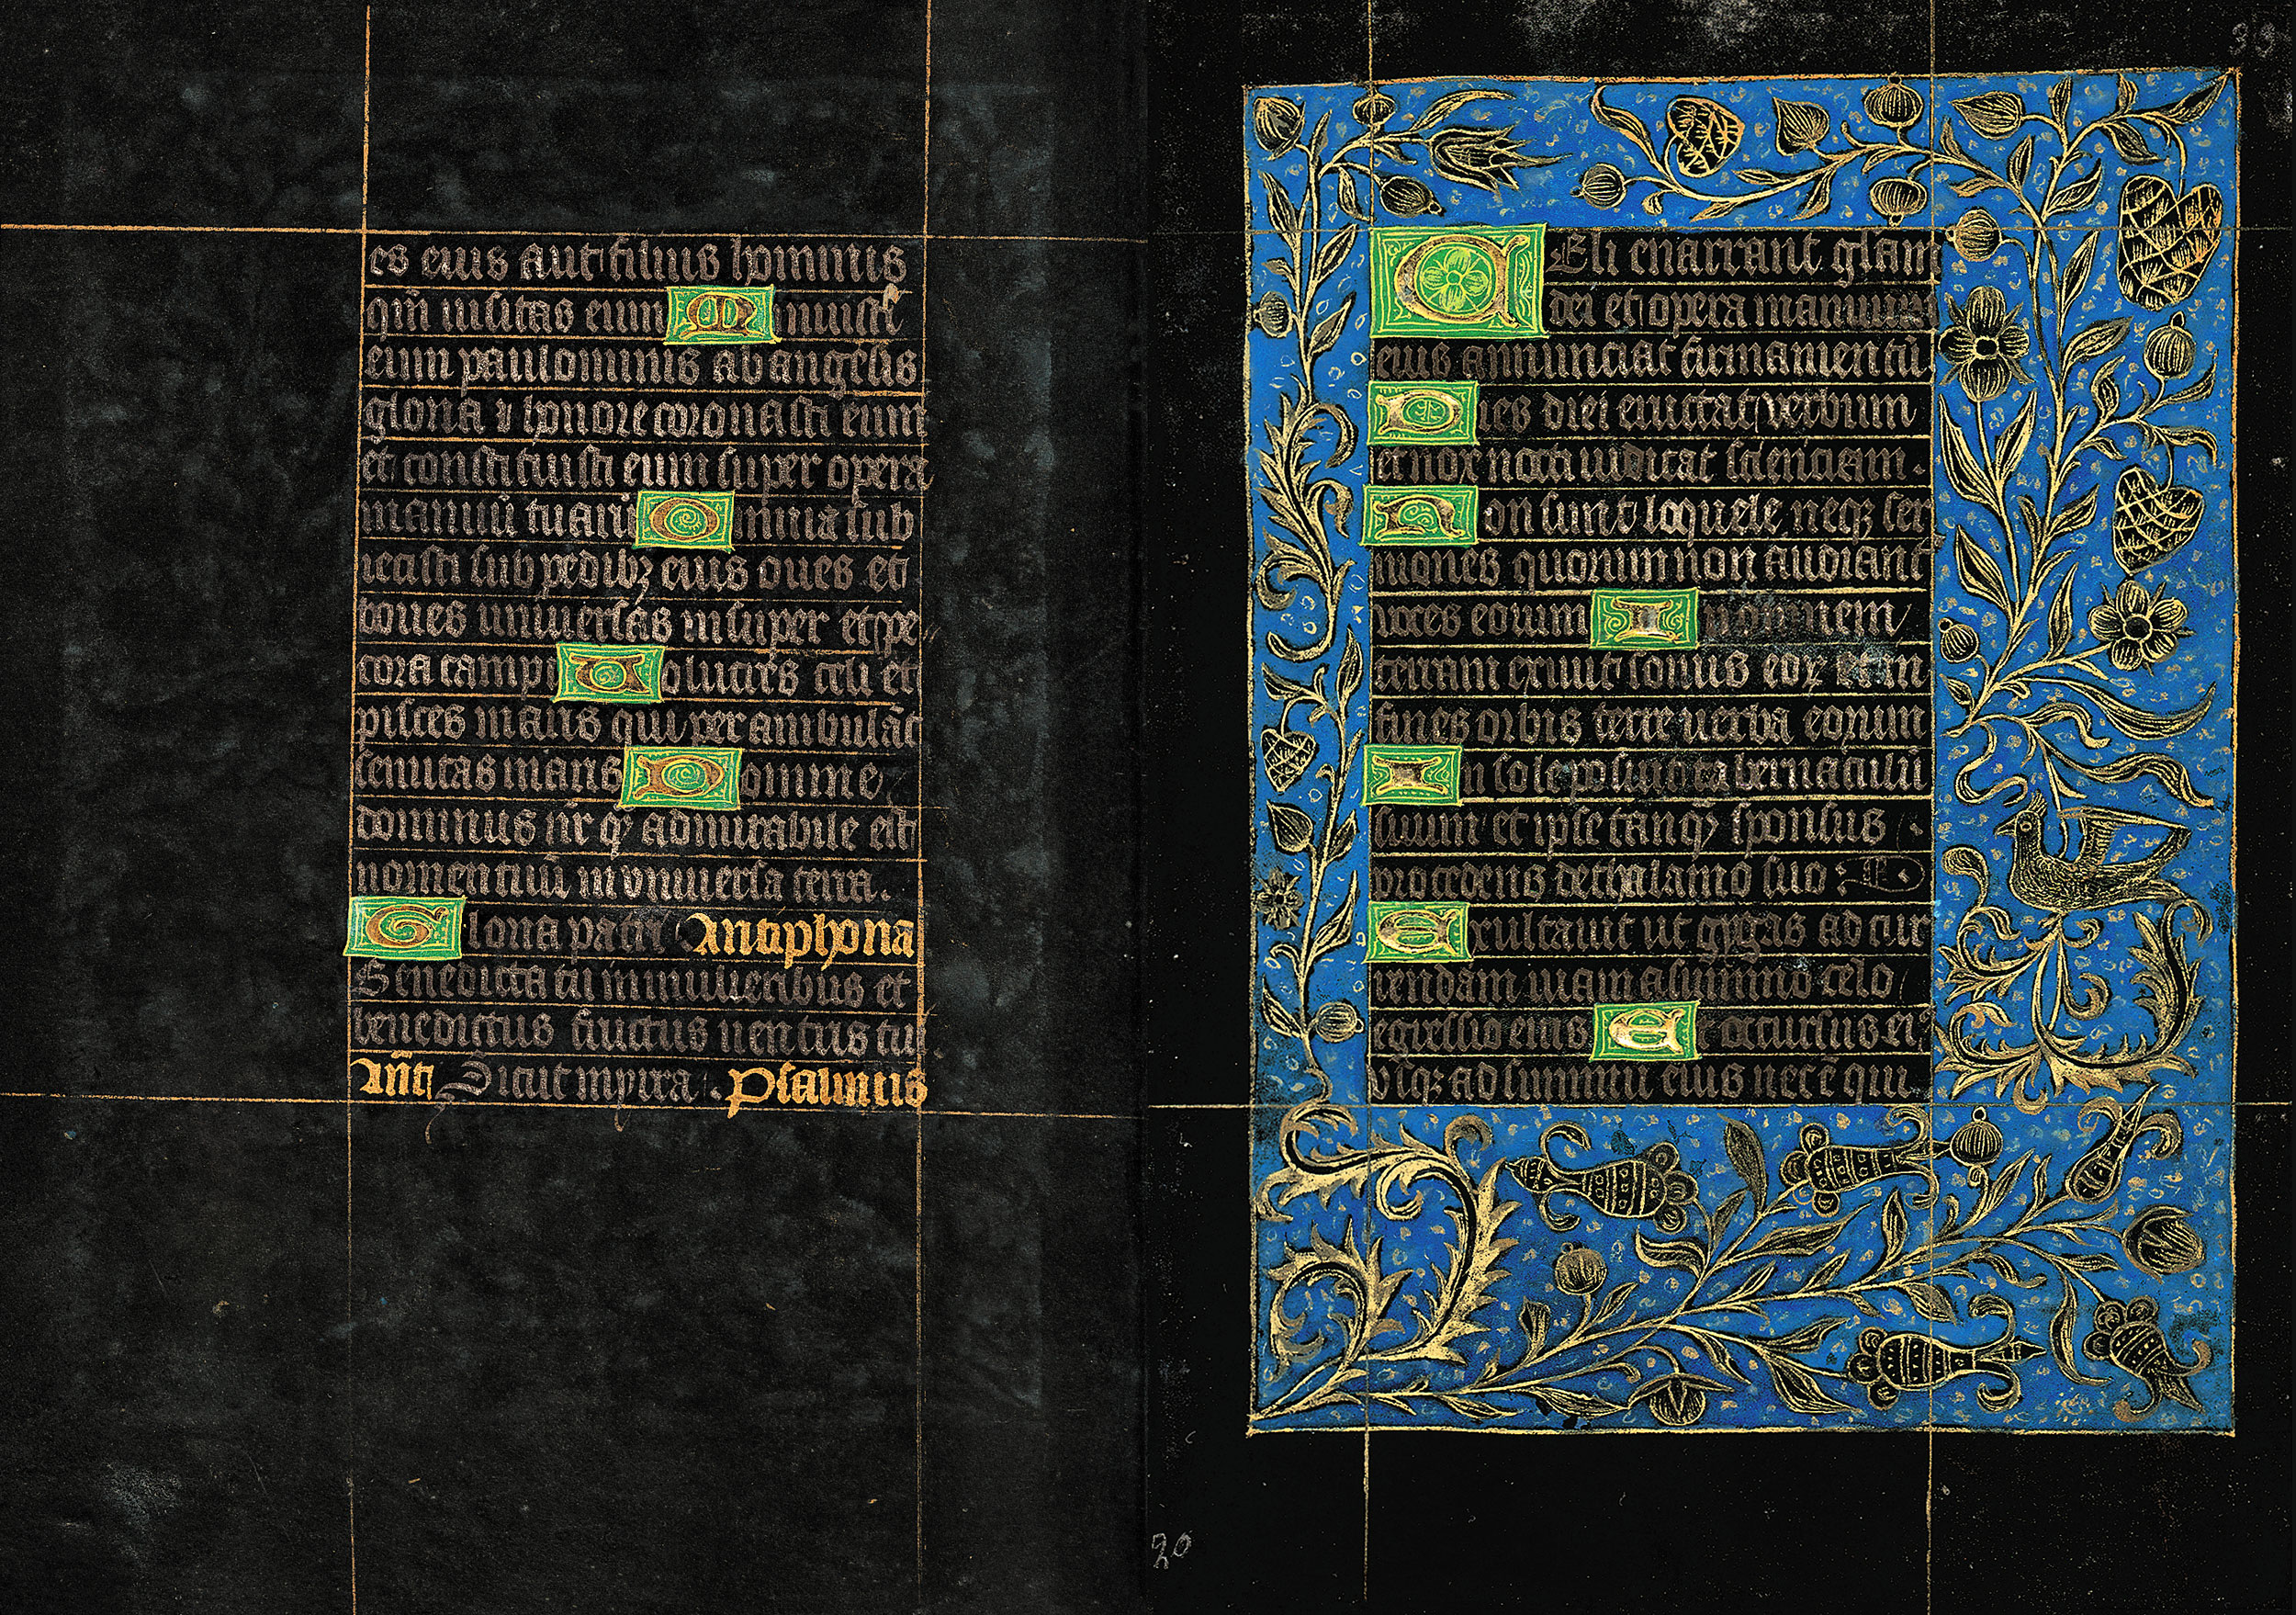 es eius aut filius hominis
qm̄ uisitas eum Minuisti
eum paulominus ab angelis
gloria ⁊ honore coronasti eum
et constituisti eum super opera
manuū tuarū Omnia sub
iecisti sub pedibꝫ eius oues et
boues uniuersas insuper et pe
cora campi Uolucres celi et
pisces maris qui perambulāt
semitas maris Domine
dominus nr̄ qͣ admirabile est
nomen tuū in vniuersa terra.
Gloria patri Antiphona
Benedicta tu in mulieribus et
benedictus fructus uentris tui
Ant̄ Sicut mirra. Psalmus
39
Celi enarrant glam
dei et opera manuum
eius annunciat firmamentū.
Dies diei eructat verbum
et nox nocti iudicat scienciam.
Non sunt loquele neqꝫ ser
mones quorum non audiant
voces eorum In omnem
terram exiuit sonus eoꝝ et in
fines orbis terre uerba eorum
In sole posuit tabernaculū
suum et ipse tanqͣ sponsus
procedens de thalamo suo:
Exultauit ut gygas ad cur
rendam uiam a summo celo
egressio eius Et occursus eiꝰ
vsqꝫ ad summū eius nec ē qui
20